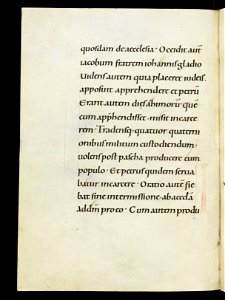 quosdam de aecclesia · Occidit aut
iacobum fratrem iohannis gladio
Uidens autem quia placeret iudeis
apposuit apprehendere et petrū
Erant autem dies azimorū quē
cum apphendisset · misit in carce
rem · Tradens · quattuor quaterni
onibus militum custodiendum ·
uolens post pascha producere eum
populo · Et petrus quidem serua
batur in carcere · Oratio autē fie
bat sine intermissione · ab aeccła
ad dm̄ pro eo · Cum autem produ